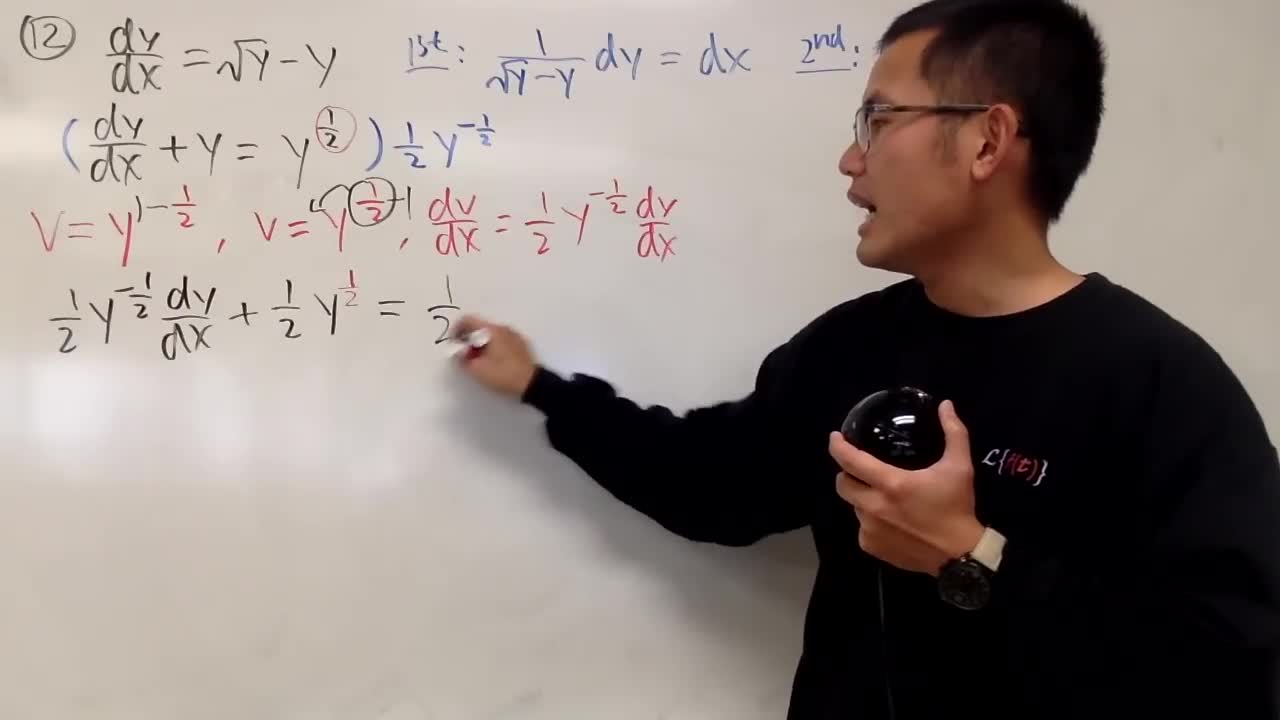 ⑫ dy/dx = √y - y 1st: 1/(√y - y) dy = dx 2nd:
(dy/dx + y = y^(1/2)) 1/2 y^(-1/2)
v = y^(1 - 1/2), v = y^(1/2) -1, dv/dx = 1/2 y^(-1/2) dy/dx
1/2 y^(-1/2) dy/dx + 1/2 y^(1/2) = 1/2
ℒ{f(t)}